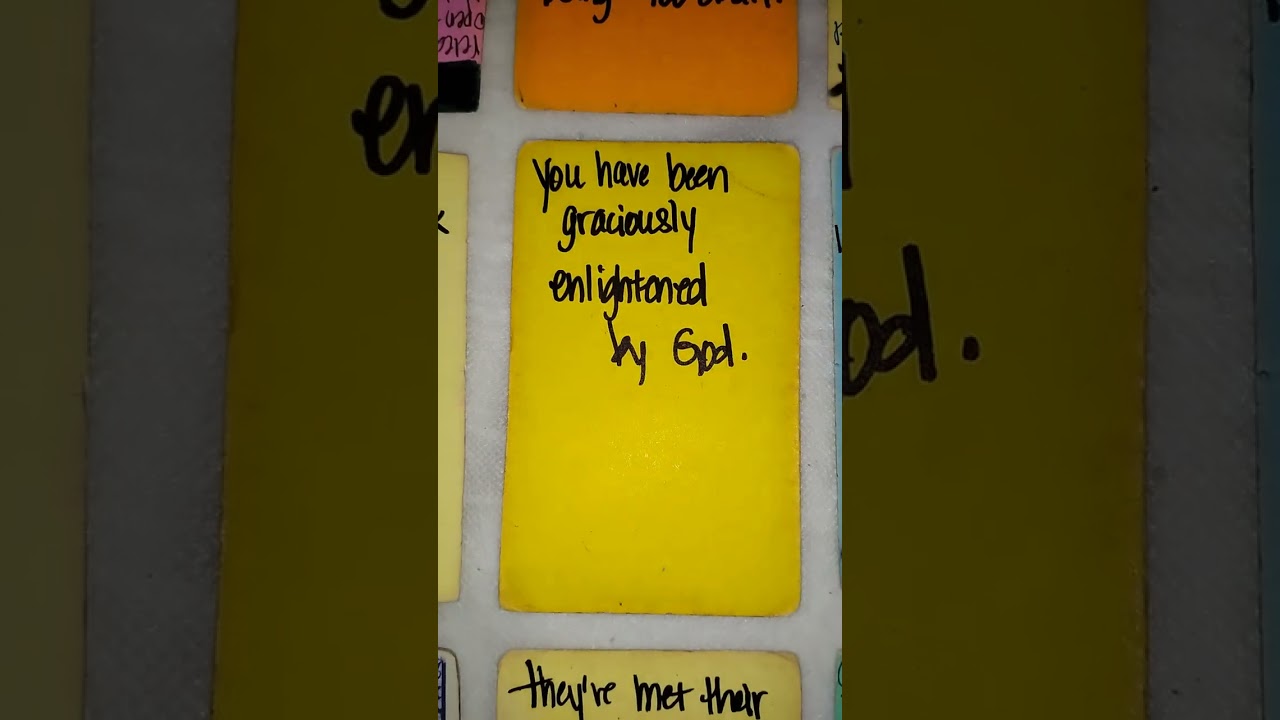 You have been
graciously
enlightened
by God.
they're met their